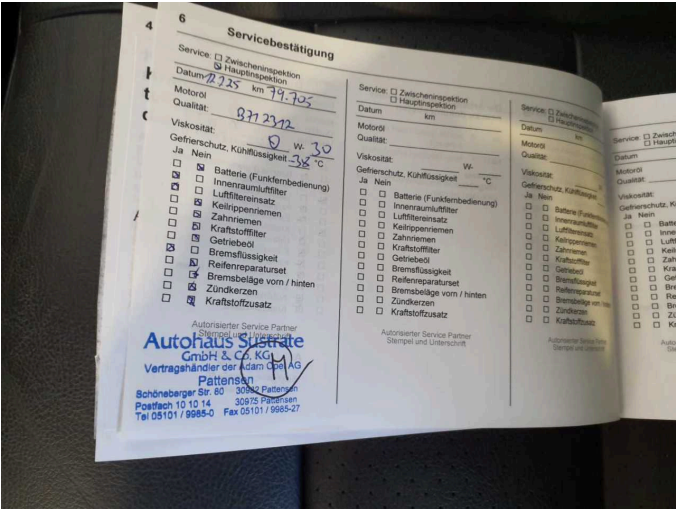 4
6
Servicebestätigung
Service: Zwischeninspektion
Hauptinspektion
Datum km 79.705
Motoröl
Qualität: B712312
Viskosität: 0 W- 30
Gefrierschutz, Kühlflüssigkeit -38 °C
Ja Nein
Batterie (Funkfernbedienung)
Innenraumluftfilter
Luftfiltereinsatz
Keilrippenriemen
Zahnriemen
Kraftstofffilter
Getriebeöl
Bremsflüssigkeit
Reifenreparaturset
Bremsbeläge vorn / hinten
Zündkerzen
Kraftstoffzusatz
Autorisierter Service Partner
Stempel und Unterschrift
Autohaus Sustrate
GmbH & Co. KG
Vertragshändler der Adam Opel AG
Pattensen
Schöneberger Str. 80 30982 Pattensen
Postfach 10 10 14 30975 Pattensen
Tel 05101 / 9985-0 Fax 05101 / 9985-27
Service: Zwischeninspektion
Hauptinspektion
Datum km
Motoröl
Qualität:
Viskosität: W-
Gefrierschutz, Kühlflüssigkeit °C
Ja Nein
Batterie (Funkfernbedienung)
Innenraumluftfilter
Luftfiltereinsatz
Keilrippenriemen
Zahnriemen
Kraftstofffilter
Getriebeöl
Bremsflüssigkeit
Reifenreparaturset
Bremsbeläge vorn / hinten
Zündkerzen
Kraftstoffzusatz
Autorisierter Service Partner
Stempel und Unterschrift
Service:
Datum km
Motoröl
Qualität:
Viskosität:
Gefrierschutz,
Ja Nein
Batterie
Innenraumluftfilter
Luftfiltereinsatz
Keilrippenriemen
Zahnriemen
Kraftstofffilter
Getriebeöl
Bremsflüssigkeit
Reifenreparaturset
Bremsbeläge vorn /
Zündkerzen
Kraftstoffzusatz
Service:
Datum
Motoröl
Qualität:
Viskosität:
Gefrierschutz,
Ja Nein